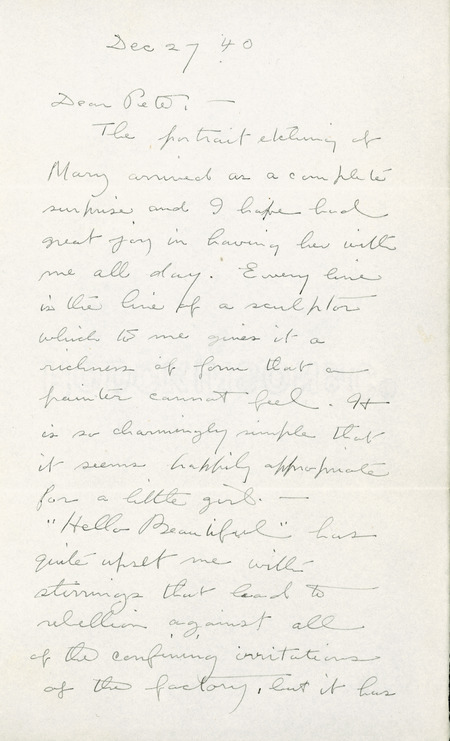 Dec 27 '40
Dear Pete, —
The portrait etching of
Mary arrived as a complete
surprise and I have had
great joy in having her with
me all day. Every line
is the line of a sculptor
which to me gives it a
richness of form that a
painter cannot feel. It
is so charmingly simple that
it seems happily appropriate
for a little girl. —
"Hello Beautiful" has
quite upset me with
stirrings that lead to
rebellion against all
of the confining irritations
of the factory, but it has